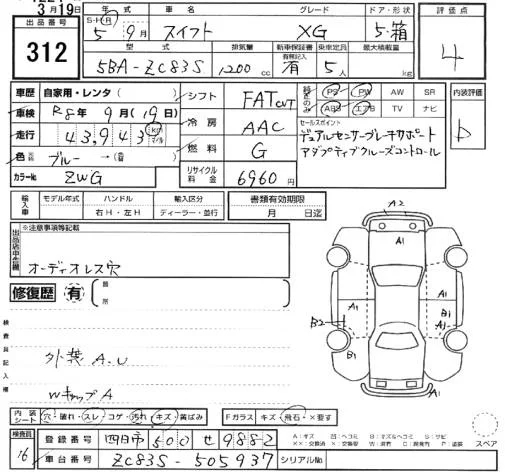 3月19日
出品番号
312
年式 車名 グレード ドア・形状
S・H・R 5年 9月 スイフト XG 5・箱
型式 排気量 新車保証書 乗車定員 最大積載量
有無記入
5BA-ZC83S 1200cc 有 5人 kg
評価点
4
車歴 自家用・レンタ( )
車検 R8年9月(19日)
走行 43,943 km マイル
色 ブルー →( )
カラーNo ZWG
シフト FAT CVT
冷房 AAC
燃料 G
リサイクル料金 6960円
PS PW AW SR
ABS エアB TV ナビ
セールスポイント
デュアルセンサーブレーキサポート
アダプティブクルーズコントロール
内装評価
b
輸入車 モデル年式 ハンドル 輸入区分 書類有効期限
右H・左H ディーラー・並行 月 日迄
※注意事項等記載
オーディオレス穴
修復歴 有
箇所
検査員記入欄
外装 A.U
WキャップA
A2
A1
A1
A1
B2
A1
B1
B1
A1
内装シート 穴・破れ・スレ・コゲ・汚れ・キズ・黄ばみ Fガラス キズ・飛石・×要す
スペア
検査員
16
登録番号 四日市 500 せ 9882
車台番号 ZC83S-505937 シリアルNo